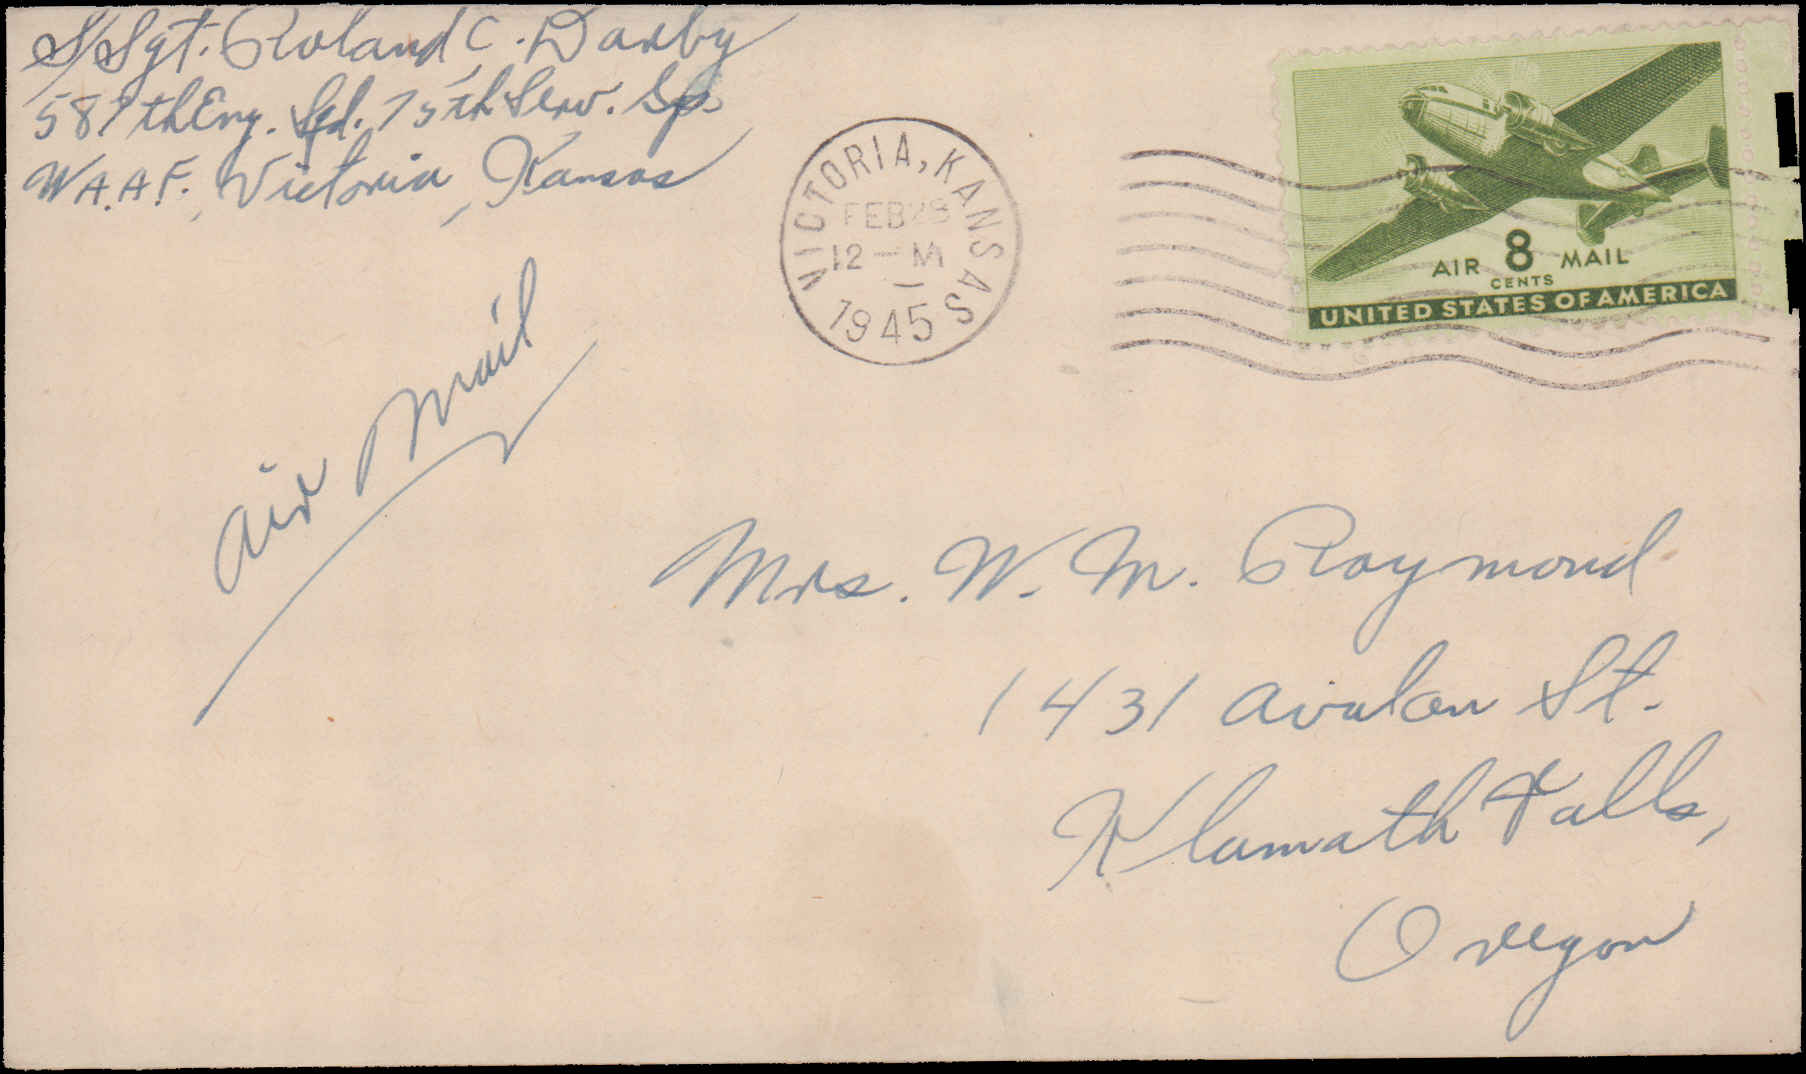 S/Sgt. Roland C. Darby
587th Eng. Sqd. 75th Serv. Gp.
W.A.A.F., Victoria, Kansas
VICTORIA, KANSAS
FEB 28
12 - M
1945
AIR 8 MAIL
CENTS
UNITED STATES OF AMERICA
Air Mail
Mrs. W. M. Raymond
1431 Avalon St.
Klamath Falls,
Oregon